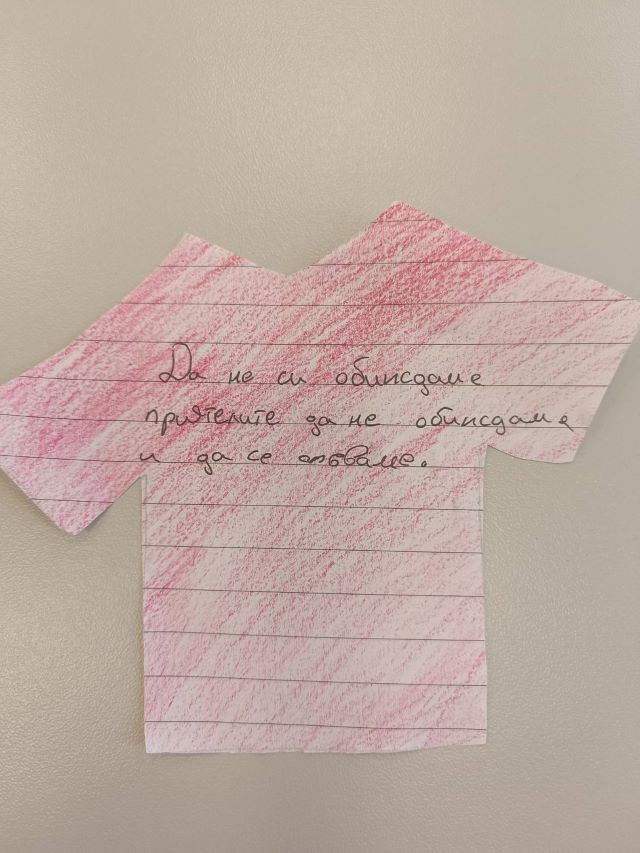 Да не си обиждаме
приятелите да не обиждаме
и да се